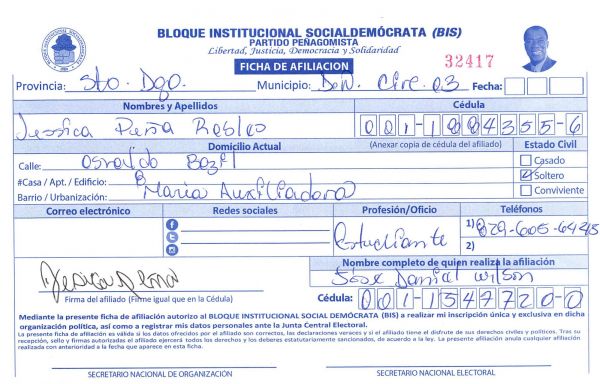 BLOQUE INSTITUCIONAL SOCIALDEMÓCRATA (BIS)
PARTIDO PEÑAGOMISTA
Libertad, Justicia, Democracia y Solidaridad
FICHA DE AFILIACION
32417
Provincia: Sto. Dgo. Municipio: D.N. Circ. 03 Fecha:
Nombres y Apellidos Cédula
Jessica Peña Robles 001-1884355-6
Domicilio Actual (Anexar copia de cédula del afiliado) Estado Civil
Calle: Casado
#Casa / Apt. / Edificio: 8 Soltero
Barrio / Urbanización: Maria Auxiliadora Conviviente
Correo electrónico Redes sociales Profesión/Oficio Teléfonos
Estudiante 1) 829-605-6445
2)
Nombre completo de quien realiza la afiliación
Jose Daniel Wilson
Firma del afiliado (Firme igual que en la Cédula) Cédula: 001-1347720-0
Mediante la presente ficha de afiliación autorizo al BLOQUE INSTITUCIONAL SOCIAL DEMÓCRATA (BIS) a realizar mi inscripción única y exclusiva en dicha
organización política, así como a registrar mis datos personales ante la Junta Central Electoral.
La presente ficha de afiliación es válida si los datos ofrecidos por el afiliado son correctos, las declaraciones veraces y si el afiliado tiene el disfrute de sus derechos civiles y políticos. Tras su
recepción, sello y firmas autorizadas el afiliado ejercerá todos los derechos y los deberes estatutariamente sancionados, de acuerdo a la ley. La presente afiliación anula cualquier afiliación
realizada con anterioridad a la fecha que aparece en esta ficha.
SECRETARIO NACIONAL DE ORGANIZACIÓN SECRETARIO NACIONAL ELECTORAL